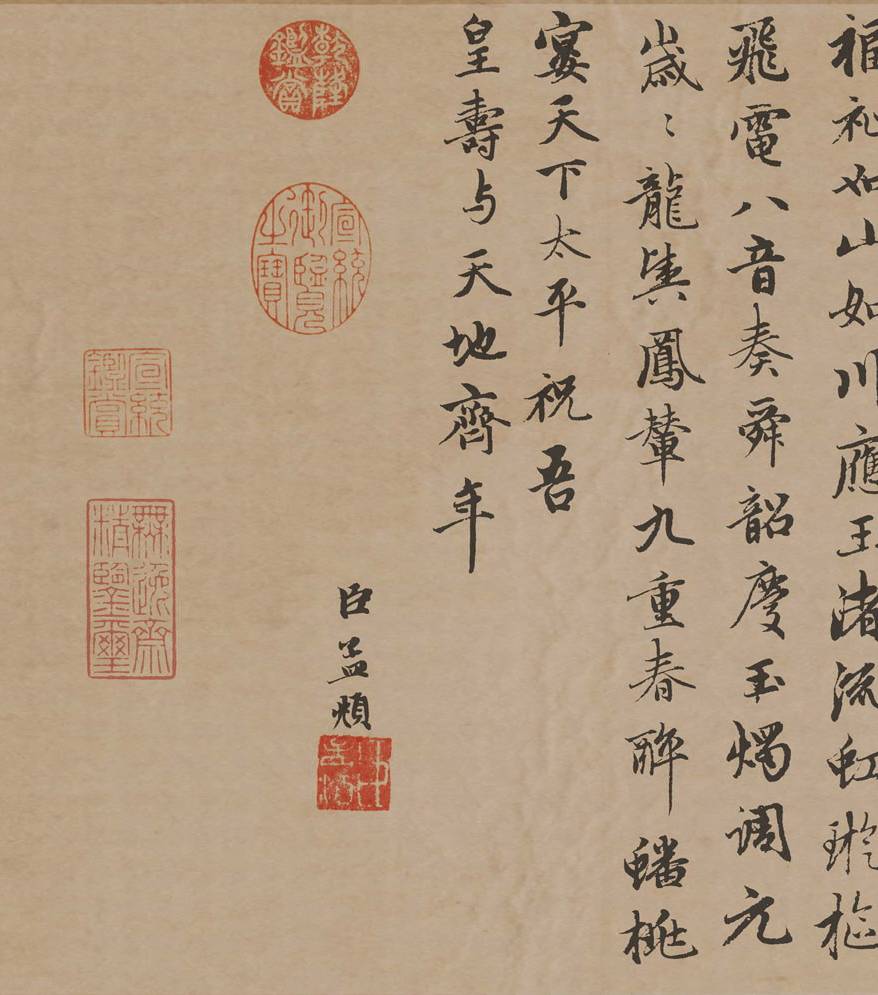 福祉如山如川應玉渚流虹璇樞
飛電八音奏舜韶慶玉燭调元
歲〻龍輿鳳輦九重春醉蟠桃
宴天下太平祝吾
皇壽与天地齊年
臣孟頫
乾隆鑑賞
宣統御覽之寶
宣統鑑賞
無逸齋精鑒璽